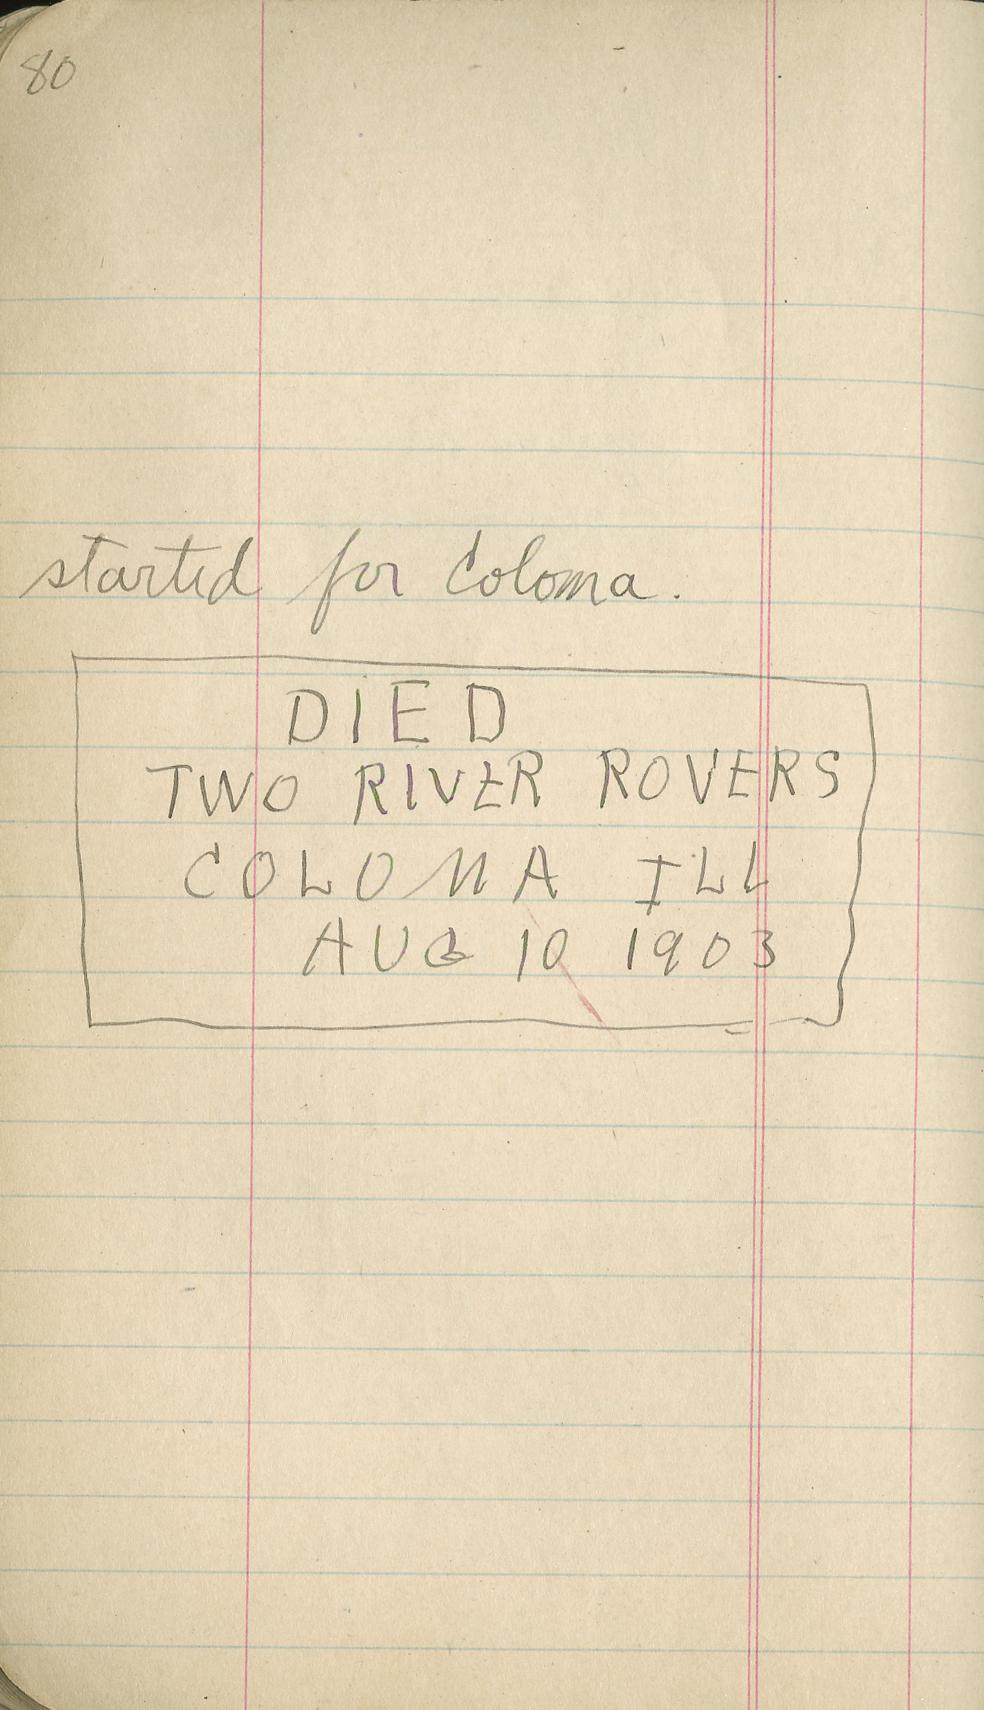 80
started for Coloma.
DIED
TWO RIVER ROVERS
COLOMA ILL
AUG 10 1903